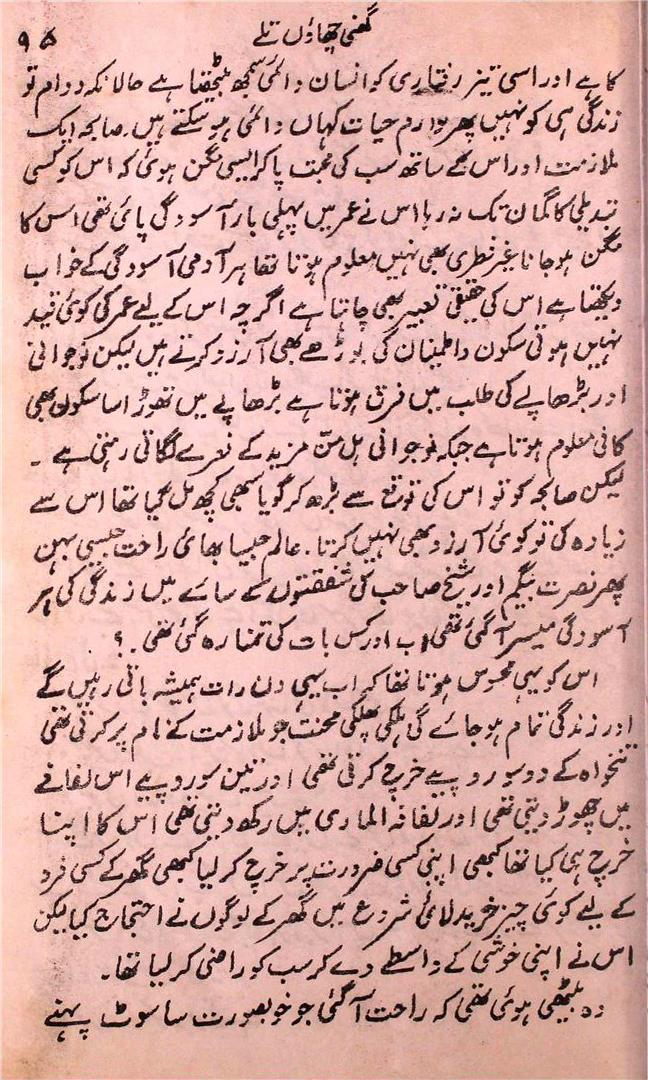 گھنی چھاؤں تلے
۹۵
کا ہے اور اسی تیز رفتاری کو انسان دائمی سمجھ بیٹھتا ہے حالانکہ دوام تو
زندگی ہی کو نہیں پھر لوازم حیات کہاں دائمی ہو سکتے ہیں. صابحہ ایک
ملازمت اور اس کے ساتھ سب کی محبت پا کر ایسی مگن ہوئی کہ اس کو کسی
تبدیلی کا گمان تک نہ رہا اس نے عمر میں پہلی بار آسودگی پائی تھی اس کا
مگن ہو جانا غیر فطری بھی نہیں معلوم ہوتا تھا ہر آدمی آسودگی کے خواب
دیکھتا ہے اس کی حقیقی تعبیر بھی چاہتا ہے اگرچہ اس کے لیے عمر کی کوئی قید
نہیں ہوتی سکون و اطمینان کی بوڑھے بھی آرزو کرتے ہیں لیکن نوجوانی
اور بڑھاپے کی طلب میں فرق ہوتا ہے بڑھاپے میں تھوڑا سا سکون بھی
کافی معلوم ہوتا ہے جبکہ نوجوانی ہل من مزید کے نعرے لگاتی رہتی ہے ۔
لیکن صابحہ کو تو اس کی توقع سے بڑھ کر گویا سبھی کچھ مل گیا تھا اس سے
زیادہ کی تو کوئی آرزو بھی نہیں کرتا. عالم جیسا بھائی راحت جیسی بہن
پھر نصرت بیگم اور شیخ صاحب کی شفقتوں کے سائے میں زندگی کی ہر
آسودگی میسر آ گئی تھی اب اور کس بات کی تمنا رہ گئی تھی ۔؟
اس کو یہی محسوس ہوتا تھا کہ اب یہی دن رات ہمیشہ باقی رہیں گے
اور زندگی تمام ہو جائے گی ہلکی پھلکی محنت جو ملازمت کے نام پر کرتی تھی
تنخواہ کے دو سو روپیے خرچ کرتی تھی اور تین سو روپیے اس لفافے
میں چھوڑ دیتی تھی اور لفافہ الماری میں رکھ دیتی تھی اس کا اپنا
خرچ ہی کیا تھا کبھی اپنی کسی ضرورت پر خرچ کر لیا کبھی گھر کے کسی فرد
کے لیے کوئی چیز خرید لائی شروع میں گھر کے لوگوں نے احتجاج کیا لیکن
اس نے اپنی خوشی کے واسطے دے کر سب کو راضی کر لیا تھا ۔
وہ بیٹھی ہوئی تھی کہ راحت آ گئی جو خوبصورت سا سوٹ پہنے